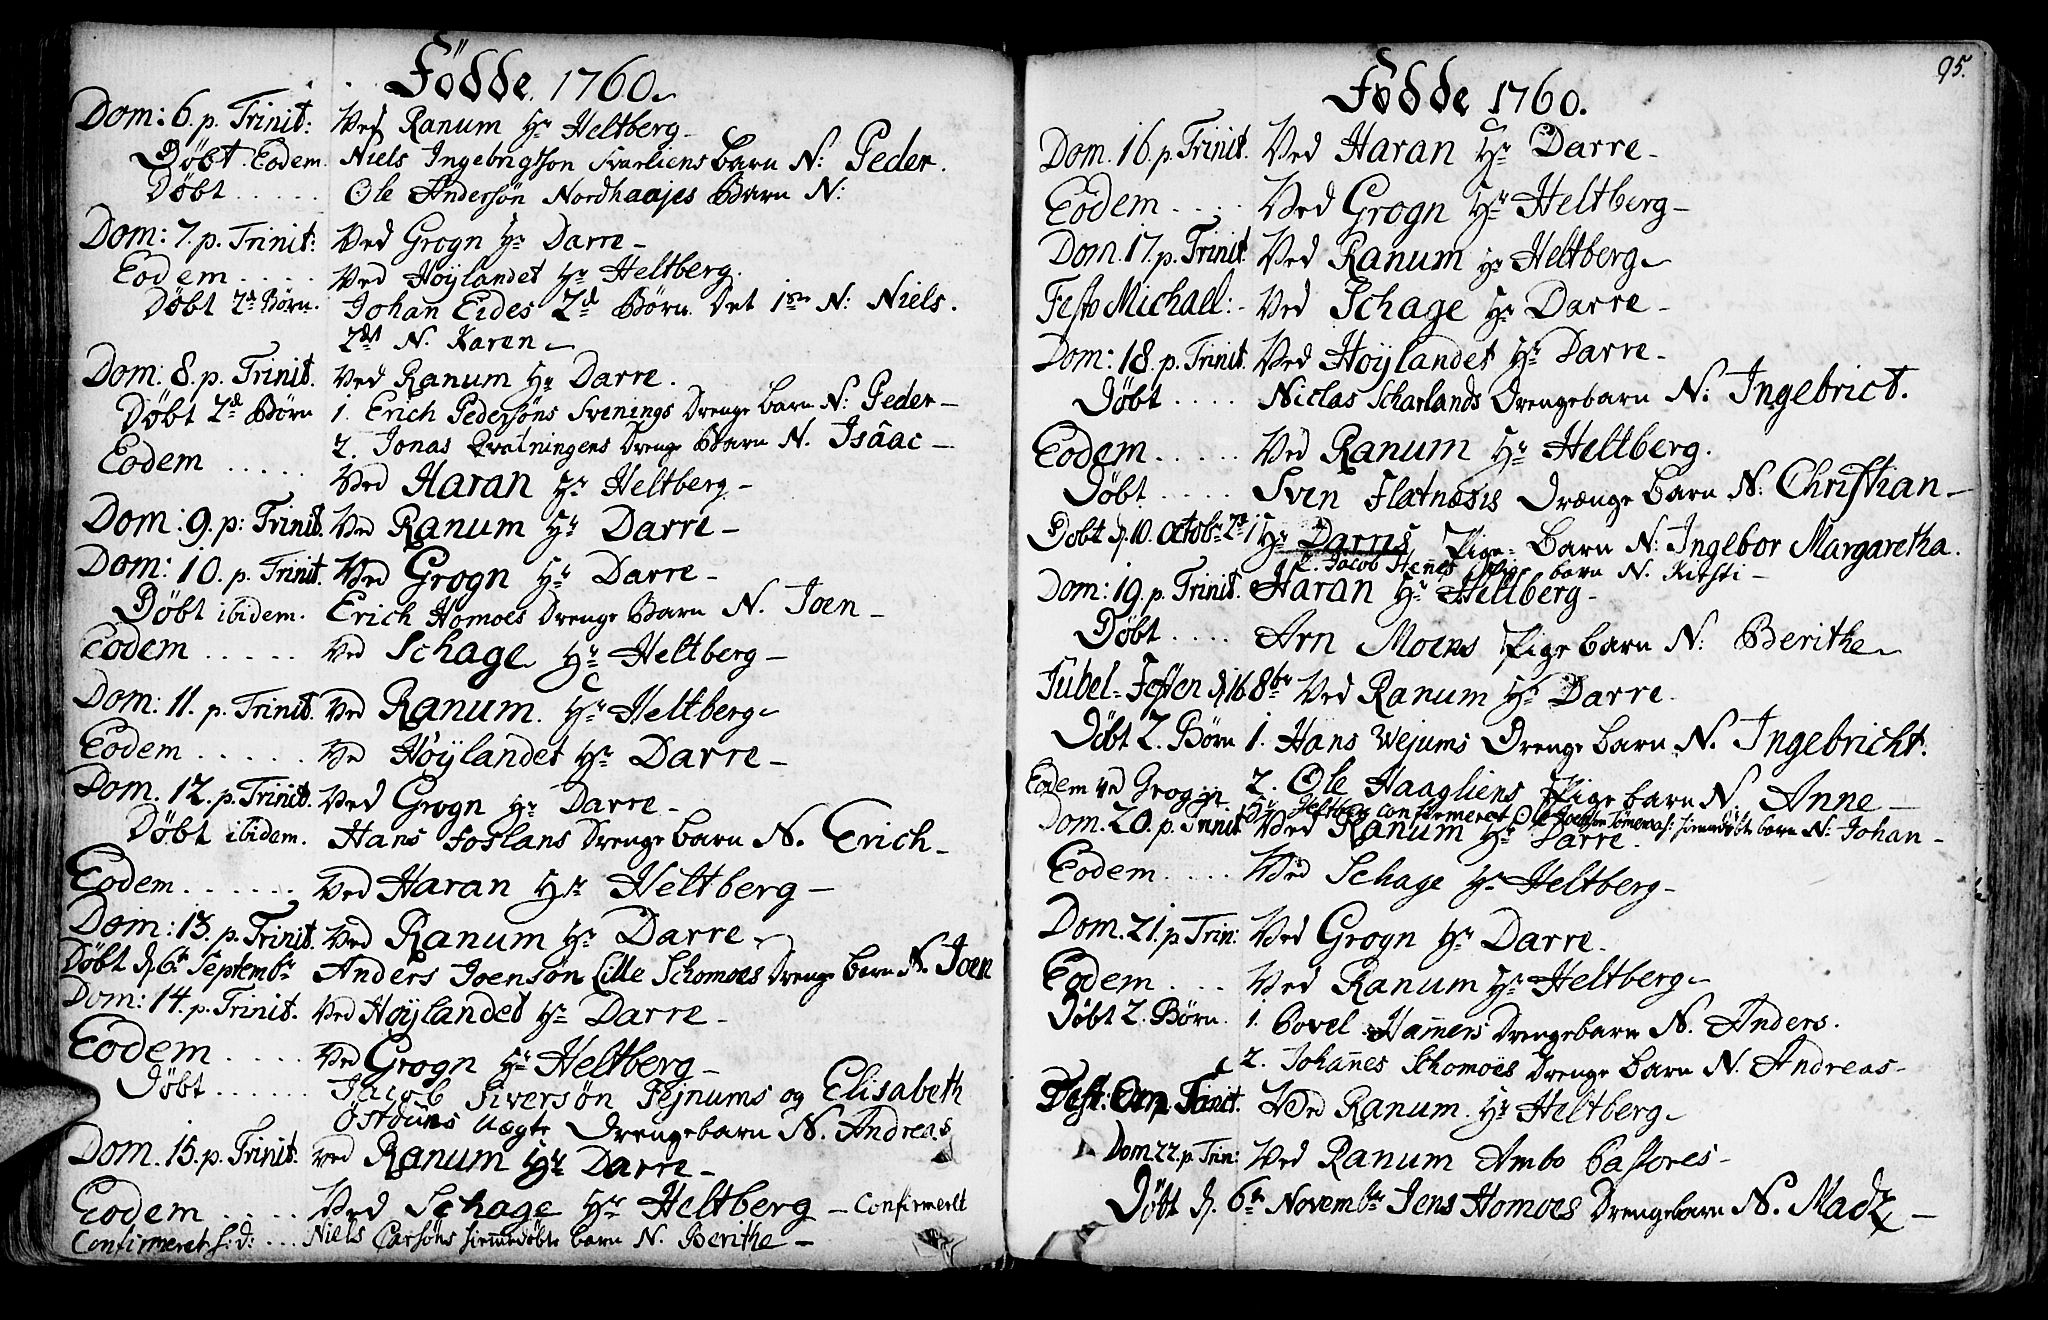 Födde 1760.
Dom: 6. p. Trinit: Ved Ranum Hr Heltberg
Döbt Eodem. Niels Ingebrigtsön Svarliens Barn N: Peder.
Döbt ..... Ole Andersön Nordhaajes Barn N:
Dom: 7. p. Trinit: Ved Grogn Hr Darre
Eodem .... Ved Höylandet Hr Heltberg.
Döbt 2de Börn. Johan Eides 2de Börn Det 1ste N: Niels.
2det N. Karen
Dom: 8. p. Trinit. Ved Ranum Hr Darre.
Döbt 2de Börn 1. Erich Pedersöns Svenings Drenge barn N: Peder
2. Jonas Qvalningens Drenge Barn N. Isāac
Eodem ..... Ved Haran Hr Heltberg
Dom: 9. p: Trinit. Ved Ranum Hr Darre
Dom: 10. p. Trinit. Ved Grogn Hr Darre
Döbt ibidem. Erich Homoes Drenge Barn N. Joen
Eodem ..... Ved Schage Hr Heltberg
Dom: 11. p. Trinit. Ved Ranum. Hr Heltberg
Eodem ..... Ved Höylandet Hr Darre
Dom. 12. p. Trinit. Ved Grogn Hr Darre
Döbt ibidem. Hans Foslans Drenge barn N. Erich
Eodem ...... Ved Haran Hr Heltberg
Dom: 13. p. Trinit. Ved Ranum Hr Darre
Döbt d. 6te Septembr Anders Joensön Lille Schomoes Drenge barn N. Joen
Dom: 14. p. Trinit. Ved Höylandet Hr Darre
Eodem .... Ved Grogn Hr Heltberg
Döbt ...... Jacob Siversön Fejnums og Elisabeth
Östduns Uægte Drengebarn N. Andreas
Dom. 15. p. Trinit. ved Ranum Hr Darre
Eodem .... Ved Schage Hr Heltberg – Confirmeret
Confirmeret s.d: ... Niels Larsöns hiemedöbte barn N. Berithe
95.
Födde 1760.
Dom. 16. p. Trinit. Ved Haran Hr Darre
Eodem .... Ved Grogn Hr Heltberg
Dom. 17. p. Trinit Ved Ranum Hr Heltberg
Festo Michael: Ved Schage Hr Darre
Dom: 18. p. Trinit. Ved Höylandet Hr Darre
Döbt .... Niclas Scharlands Drengebarn N. Ingebrict.
Eodem ..... Ved Ranum Hr Heltberg.
Döbt .... Sven Flatnæsis Drænge barn N: Christian
Döbt d. 10. Octobr 2de 1 Hr Darres Pige Barn N. Ingebor Margaretha.
2. Jacob barn N. Kitsti
Dom: 19. p. Trinit. Haran Hr Heltberg
Döbt .... Arn Moens Pige barn N: Berithe
Jubel-Festen d. 16 8br Ved Ranum Hr Darre.
Döbt 2. Börn 1. Hans Wejums Drenge barn N. Ingebricht.
2. Ole Haagliens Pige barn N. Anne
Eodem ved Grogn. Hr Heltberg confirmeret Ole hiemedöbt barn N: Johan
Dom. 20. p. Trinit Ved Ranum Hr Darre.
Eodem .... Ved Schage Hr Heltberg
Dom. 21. p Trin: Ved Grogn Hr Darre.
Eodem .... Ved Ranum Hr Heltberg
Döbt 2. Börn. 1. Povel Ham̄ers Drengebarn N. Anders.
2. Johan̄es Schomoes Drenge barn N. Andreas
Fest: Om. Ved Ranum. Hr Heltberg
Dom 22. p Trin: Ved Ranum Ambo Pastores
Döbt d. 6te Novembr Jens Homoes Drengebarn N. Madz